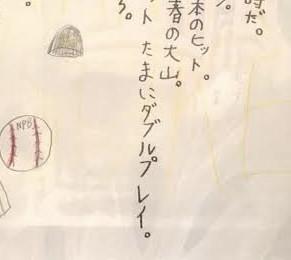 時だ。
。
本のヒット。
春の大山。
ット たまにダブルプレイ。
る。
。
NPB